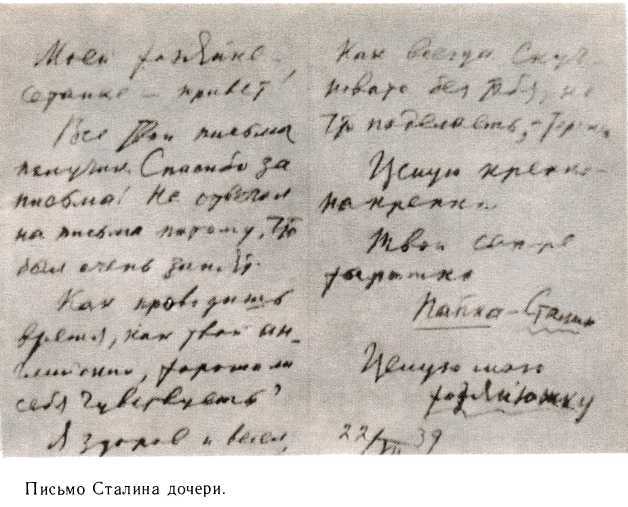 Моей хозяйке –
Сетанке – привет!
Все твои письма
получил. Спасибо за
письма! Не отвечал
на письма потому, что
был очень занят.
Как проводишь
время, как твой ан-
глийский, хорошо ли
себя чувствуешь?
Я здоров и весел,
как всегда. Скуч-
новато без тебя, но
что поделаешь, – терплю.
Целую крепко-
накрепко.
Твой
Папка-Сталин
Целую мою
хозяюшку
22/VII 39
Письмо Сталина дочери.